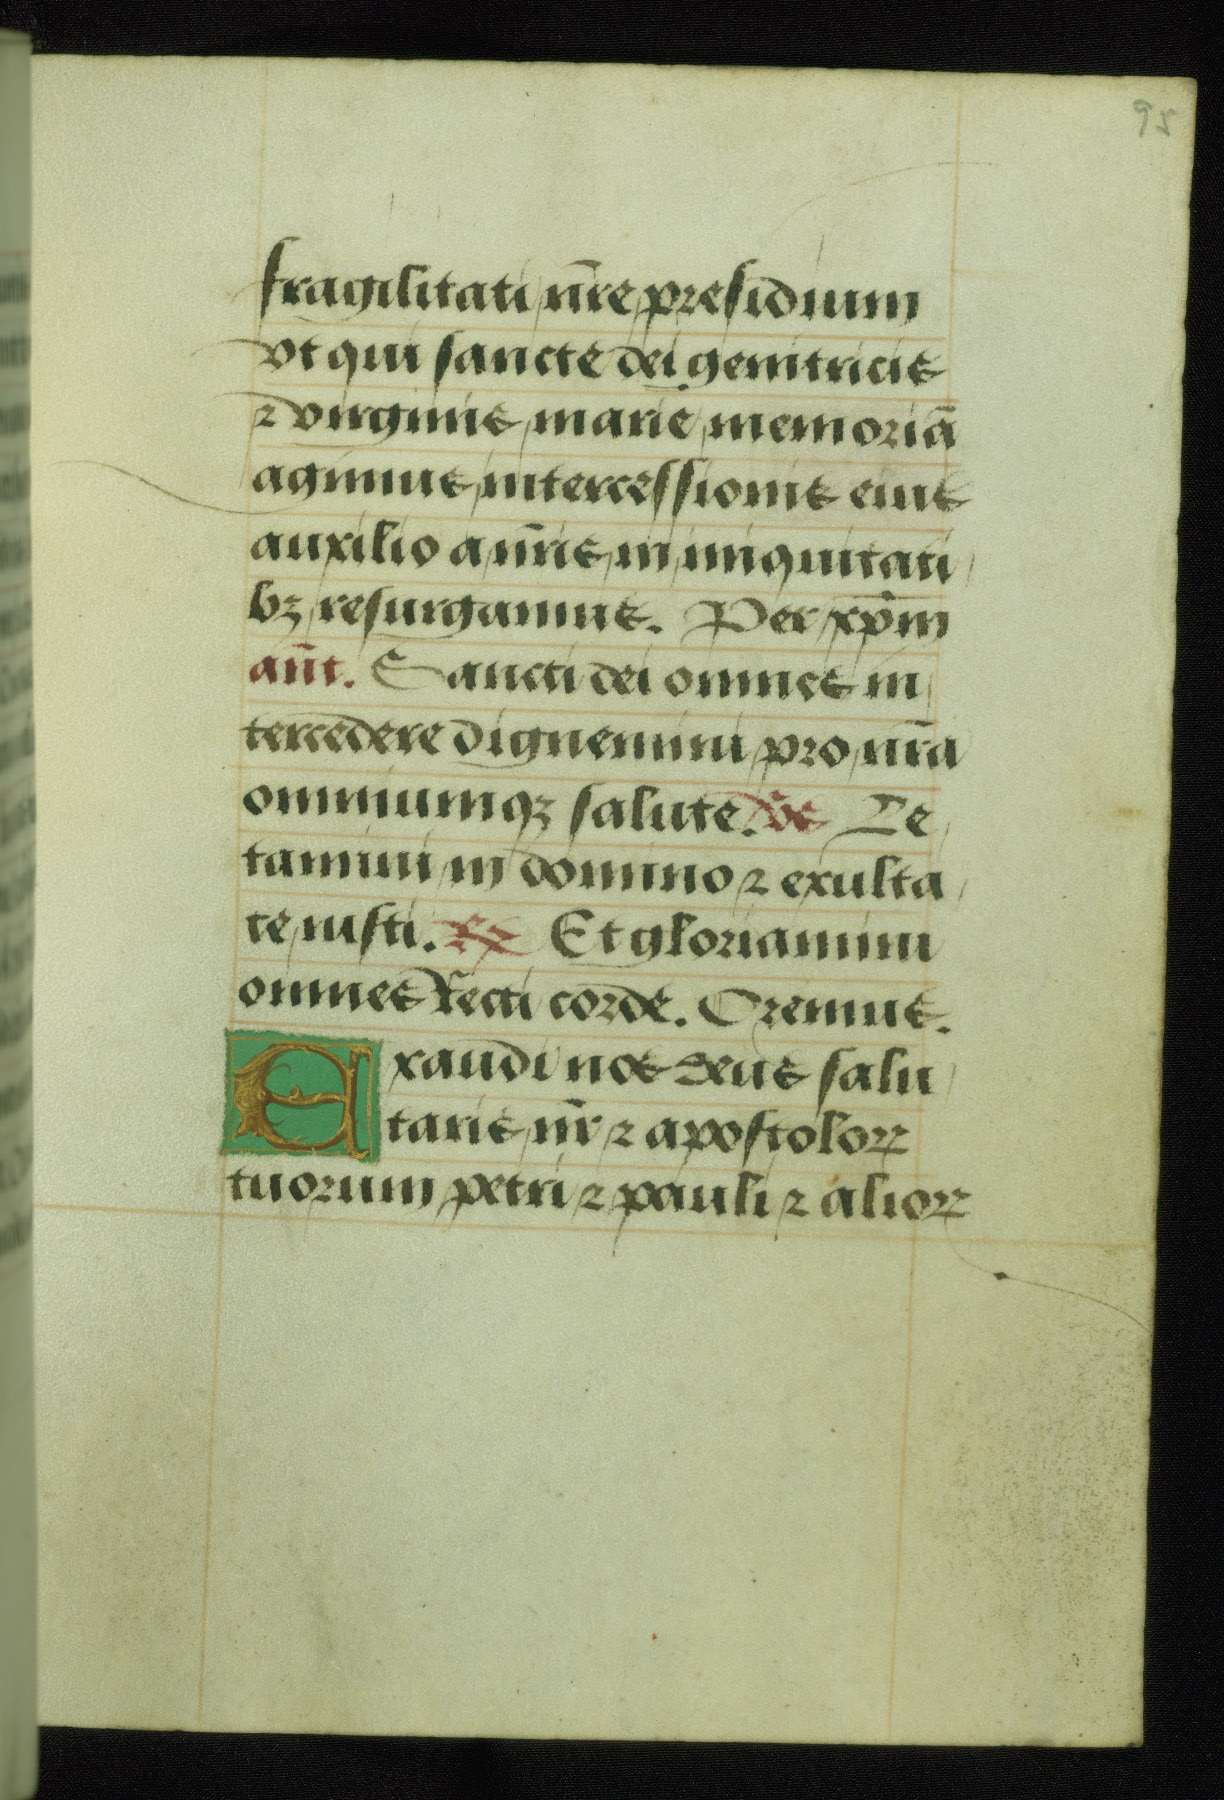 95
fragilitati nr̄e presidium
vt qui sancte dei genitricis
⁊ virginis marie memoriā
agimus intercessionis eius
auxilio a nr̄is in iniquitati
bꝫ resurgamus. Per xp̄m
an̄t. Sancti dei omnes in
tercedere dignemini pro nr̄a
omniumqꝫ salute. v̄s Le
tamini in domino ⁊ exulta
te iusti. ℟ Et gloriamini
omnes recti corde. Oremus.
Exaudi nos deus salu
taris nr̄ ⁊ apostoloꝝ
tuorum petri ⁊ pauli ⁊ alioꝝ